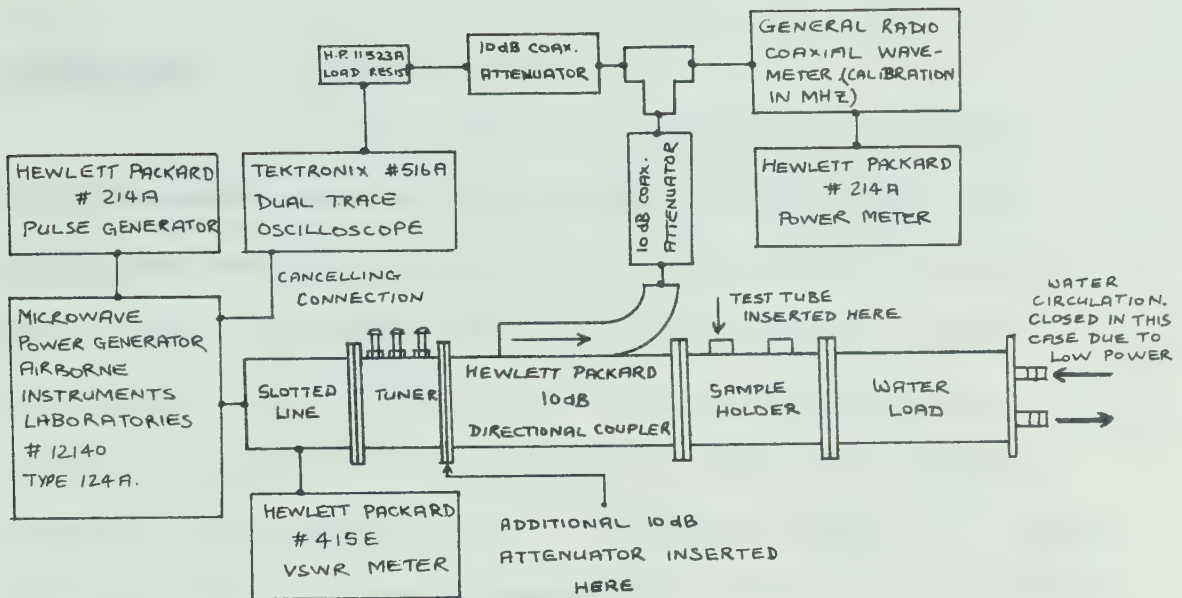 H.P. 11523A
LOAD RESIST
10dB COAX.
ATTENUATOR
GENERAL RADIO
COAXIAL WAVE-
METER (CALIBRATION
IN MHZ)
HEWLETT PACKARD
# 214A
PULSE GENERATOR
TEKTRONIX #516A
DUAL TRACE
OSCILLOSCOPE
10dB COAX.
ATTENUATOR
HEWLETT PACKARD
# 214A
POWER METER
CANCELLING
CONNECTION
MICROWAVE
POWER GENERATOR
AIRBORNE
INSTRUMENTS
LABORATORIES
# 12140
TYPE 124A.
SLOTTED
LINE
TUNER
HEWLETT PACKARD
10dB
DIRECTIONAL COUPLER
TEST TUBE
INSERTED HERE
SAMPLE
HOLDER
WATER
LOAD
WATER
CIRCULATION.
CLOSED IN THIS
CASE DUE TO
LOW POWER
HEWLETT PACKARD
# 415E
VSWR METER
ADDITIONAL 10dB
ATTENUATOR INSERTED
HERE